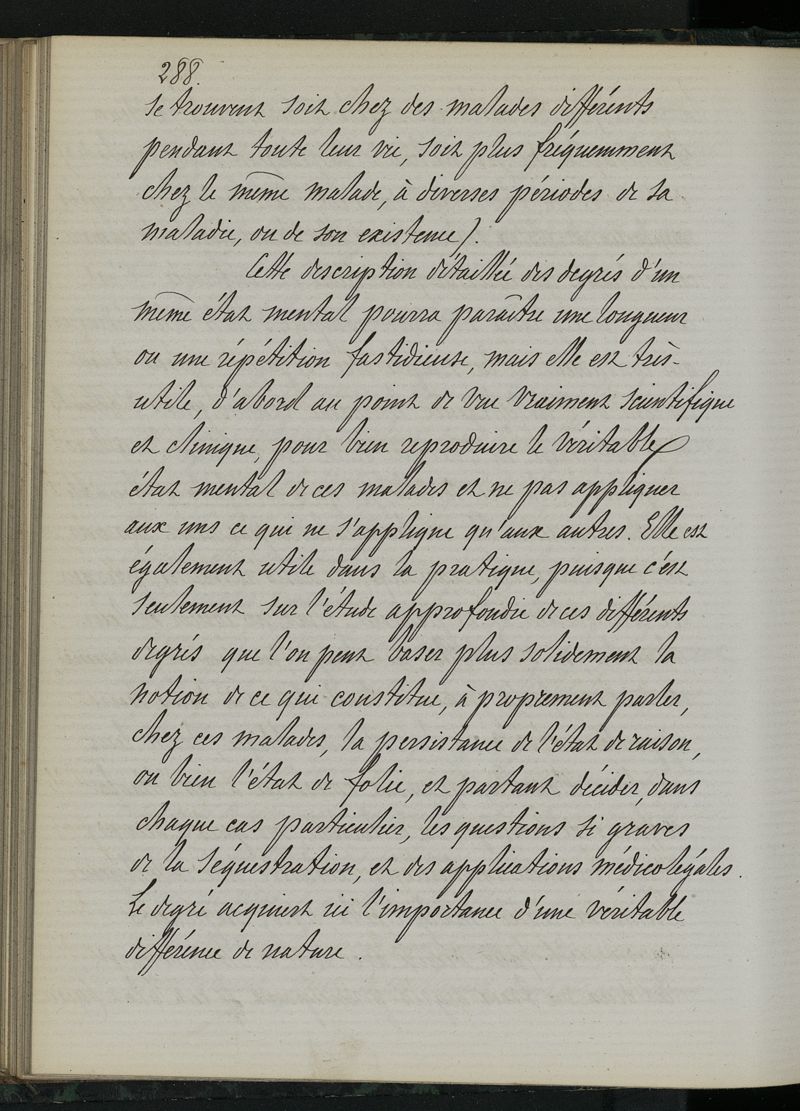 288.
se trouvent soit chez des malades différents
pendant toute leur vie, soit plus fréquemment
chez le même malade, à diverses périodes de sa
maladie, ou de son existence).
Cette description détaillée des degrés d'un
même état mental pourra paraître une longueur
ou une répétition fastidieuse, mais elle est très-
utile, d'abord au point de vue vraiment scientifique
et clinique, pour bien reproduire le véritable
état mental de ces malades et ne pas appliquer
aux uns ce qui ne s'applique qu'aux autres. Elle est
également utile dans la pratique, puisque c'est
seulement sur l'étude approfondie de ces différents
degrés que l'on peut baser plus solidement la
notion de ce qui constitue, à proprement parler,
chez ces malades, la persistance de l'état de raison,
ou bien l'état de folie, et partant décider, dans
chaque cas particulier, les questions si graves
de la séquestration, et des applications médico légales.
Le degré acquiert ici l'importance d'une véritable
différence de nature.